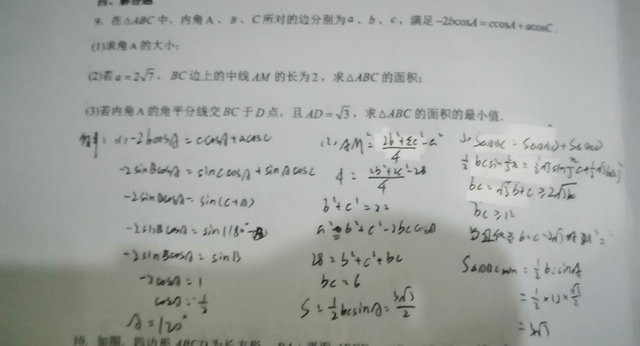 四、解答题
9. 在△ABC中,内角A、B、C所对的边分别为a、b、c,满足-2bcosA=ccosA+acosC.
(1)求角A的大小;
(2)若a=2√7,BC边上的中线AM的长为2,求△ABC的面积;
(3)若内角A的角平分线交BC于D点,且AD=√3,求△ABC的面积的最小值.
(1)-2bcosA=ccosA+acosC
-2sinBcosA=sinCcosA+sinAcosC
-2sinBcosA=sin(C+A)
-2sinBcosA=sin(180°-B)
-2sinBcosA=sinB
-2cosA=1
cosA=-1/2
A=120°
AM²=(2b²+2c²-a²)/4
4=(2b²+2c²-28)/4
b²+c²=22
a²=b²+c²-2bccosA
28=b²+c²+bc
bc=6
S=1/2bcsinA=3√3/2
bc≥12
S△ABCmin=1/2bcsinA
=1/2×12×√3/2
=3√3